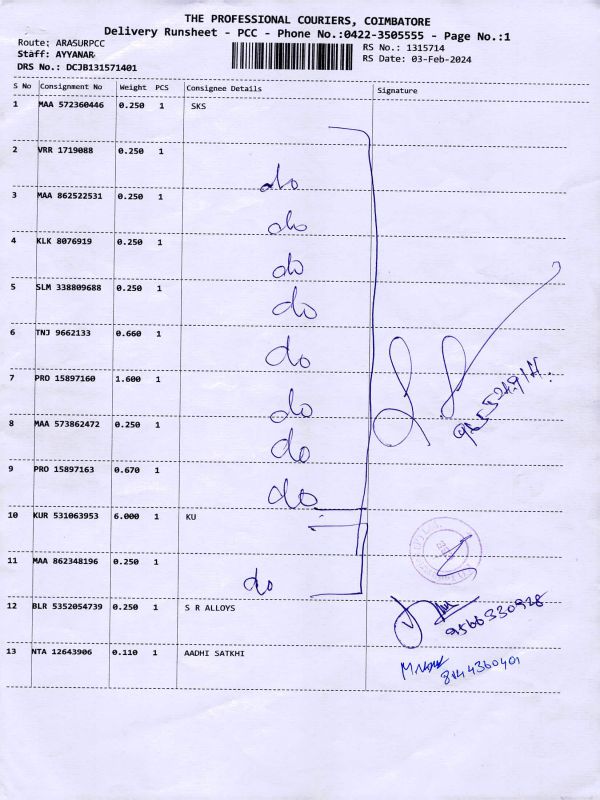 THE PROFESSIONAL COURIERS, COIMBATORE
Delivery Runsheet - PCC - Phone No.:0422-3505555 - Page No.:1
Route: ARASURPCC
Staff: AYYANAR
DRS No.: DCJB131571401
RS No.: 1315714
RS Date: 03-Feb-2024
S No Consignment No Weight PCS Consignee Details Signature
1 MAA 572360446 0.250 1 SKS
2 VRR 1719088 0.250 1
do
3 MAA 862522531 0.250 1
do
4 KLK 8076919 0.250 1
do
5 SLM 338809688 0.250 1
do
6 TNJ 9662133 0.660 1
do
7 PRO 15897160 1.600 1
do
8 MAA 573862472 0.250 1
do
9 PRO 15897163 0.670 1
do
10 KUR 531063953 6.000 1 KU
11 MAA 862348196 0.250 1
do
12 BLR 5352054739 0.250 1 S R ALLOYS
9566330928
13 NTA 12643906 0.110 1 AADHI SATKHI
8144360401